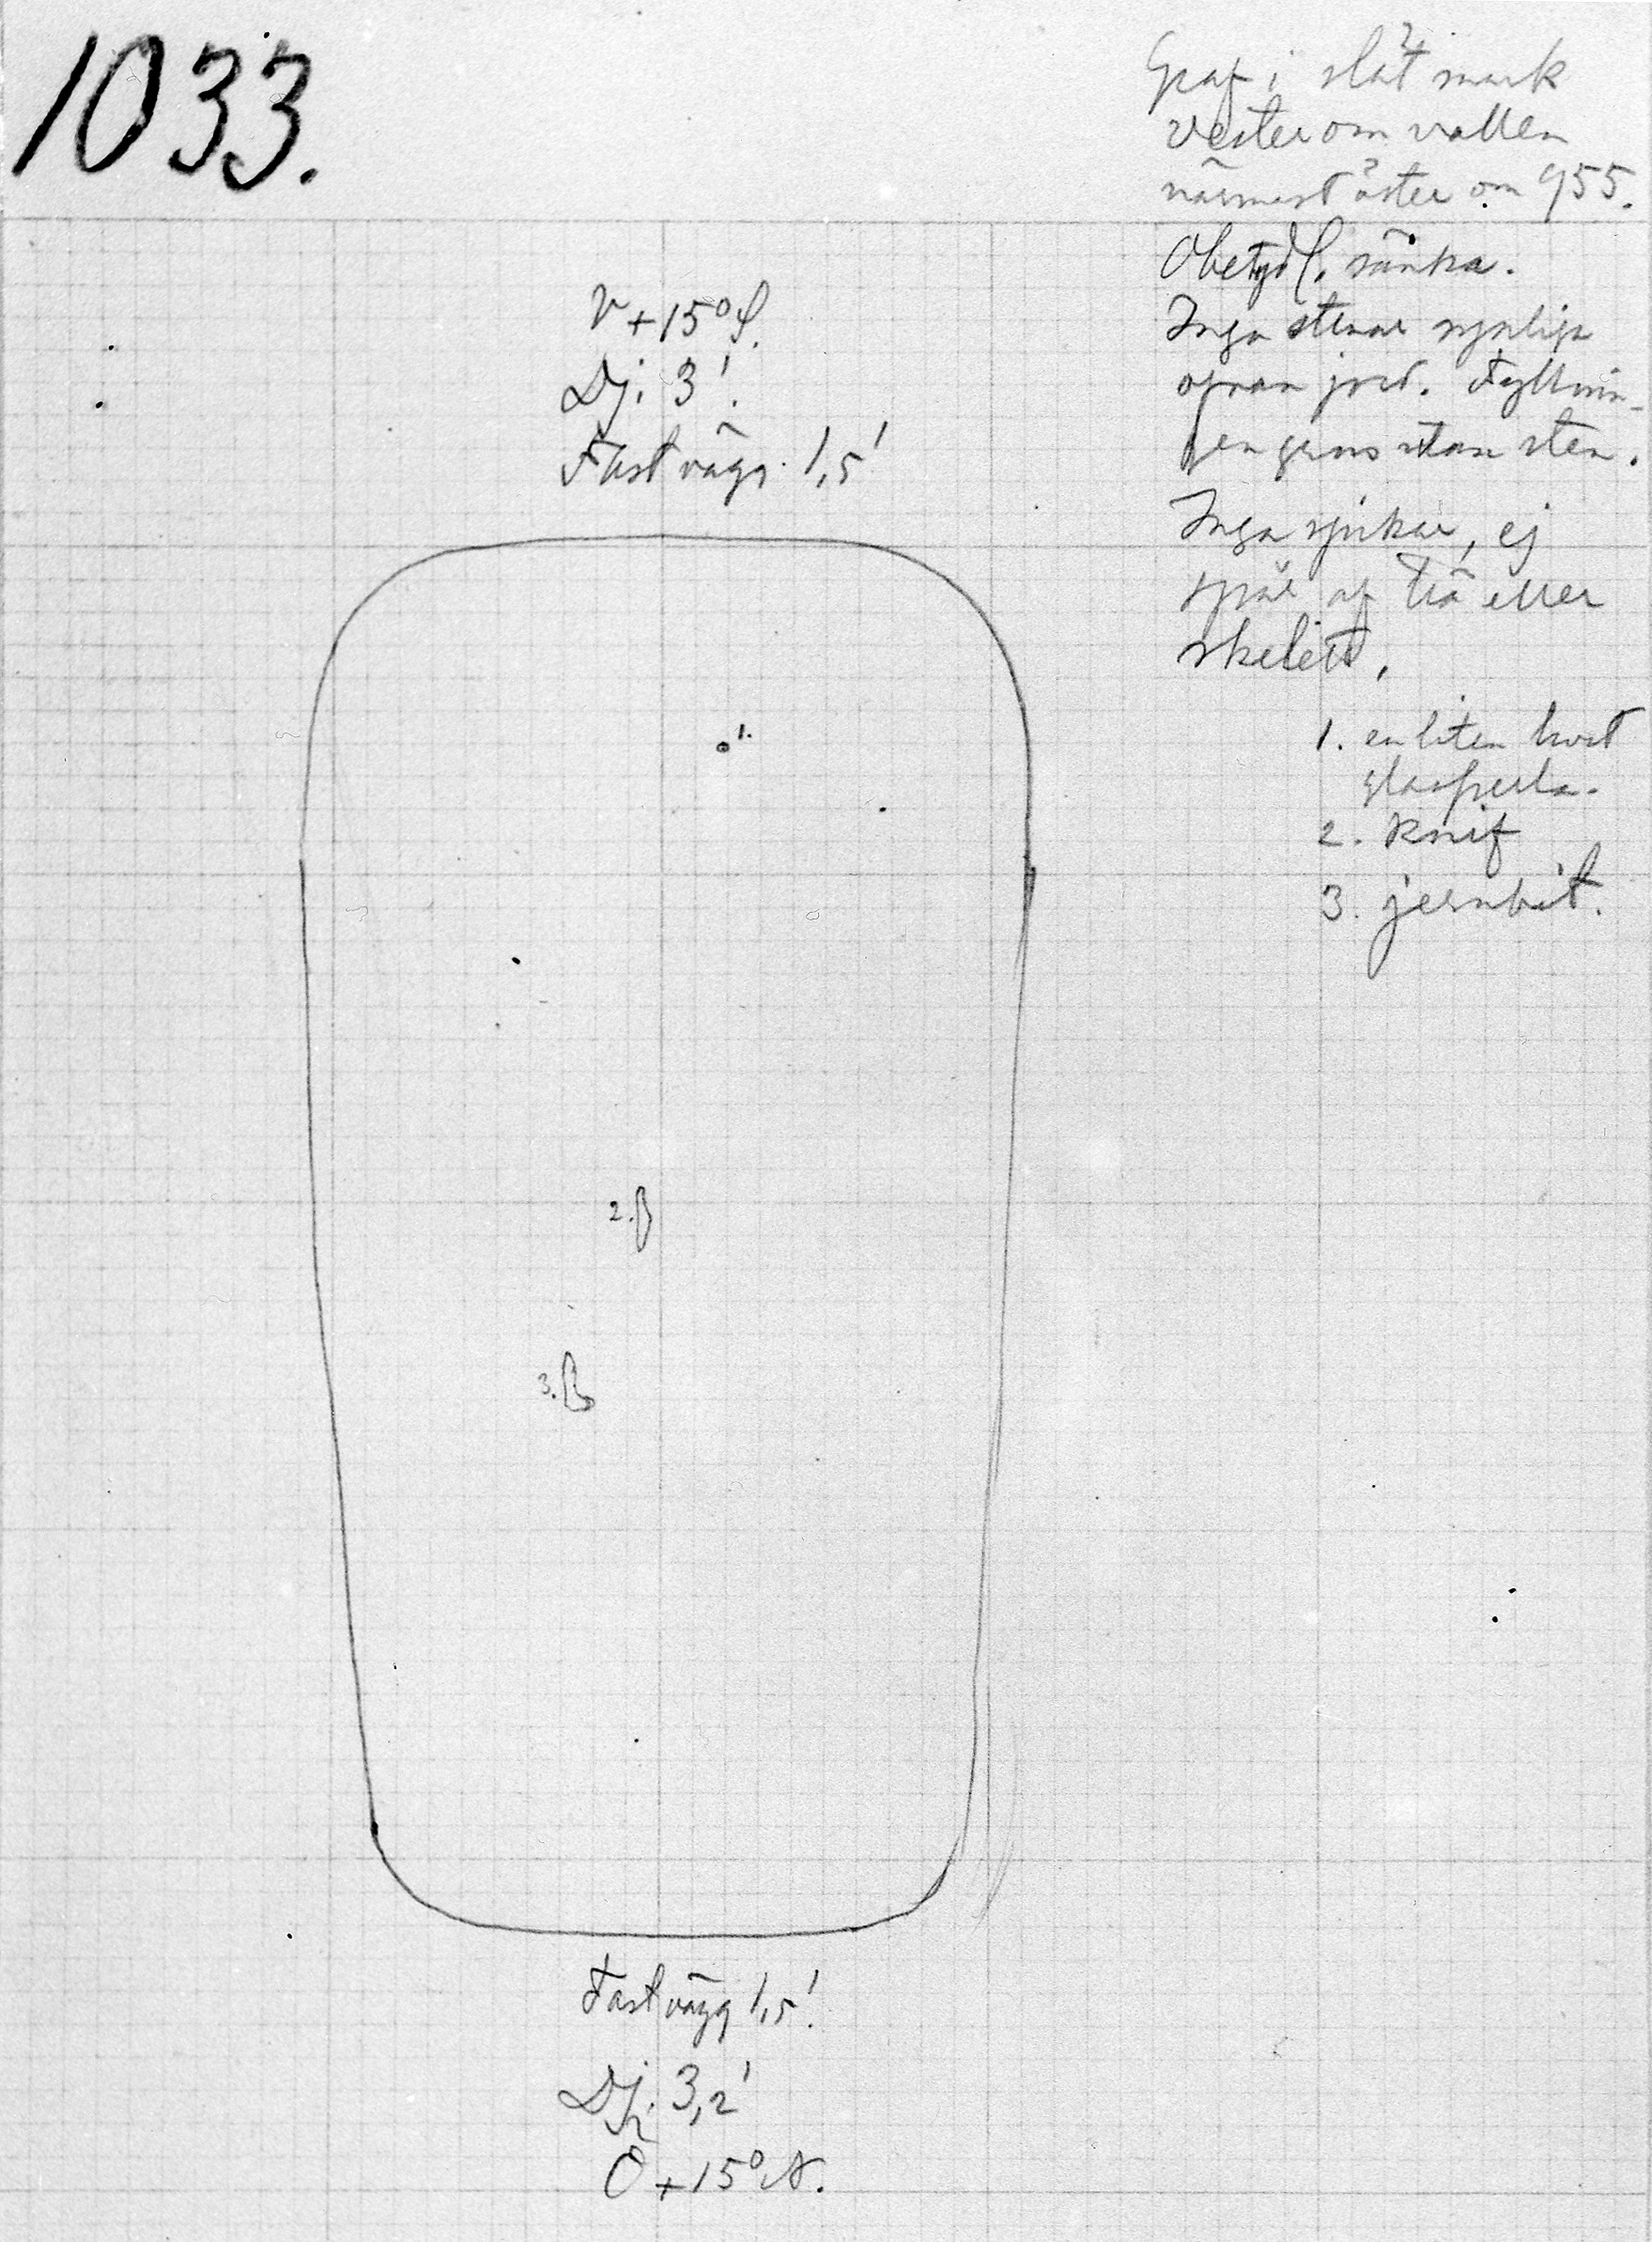 1033.
Graf i slät mark
vester om vallen
närmast öster om 955.
Obetydl. sänka.
Inga stenar synliga
ofvan jord. Fyllnin-
gen grus utan sten.
Inga spikar, ej
spår af trä eller
skelett.
1. en liten hvit
glasperla.
2. Knif
3. jernbit.
V + 15° S.
Dj. 3'.
Fast vägg. 1,5'
1.
2.
3.
Fast vägg 1,5'.
Dj. 3,2'
Ö + 15° N.